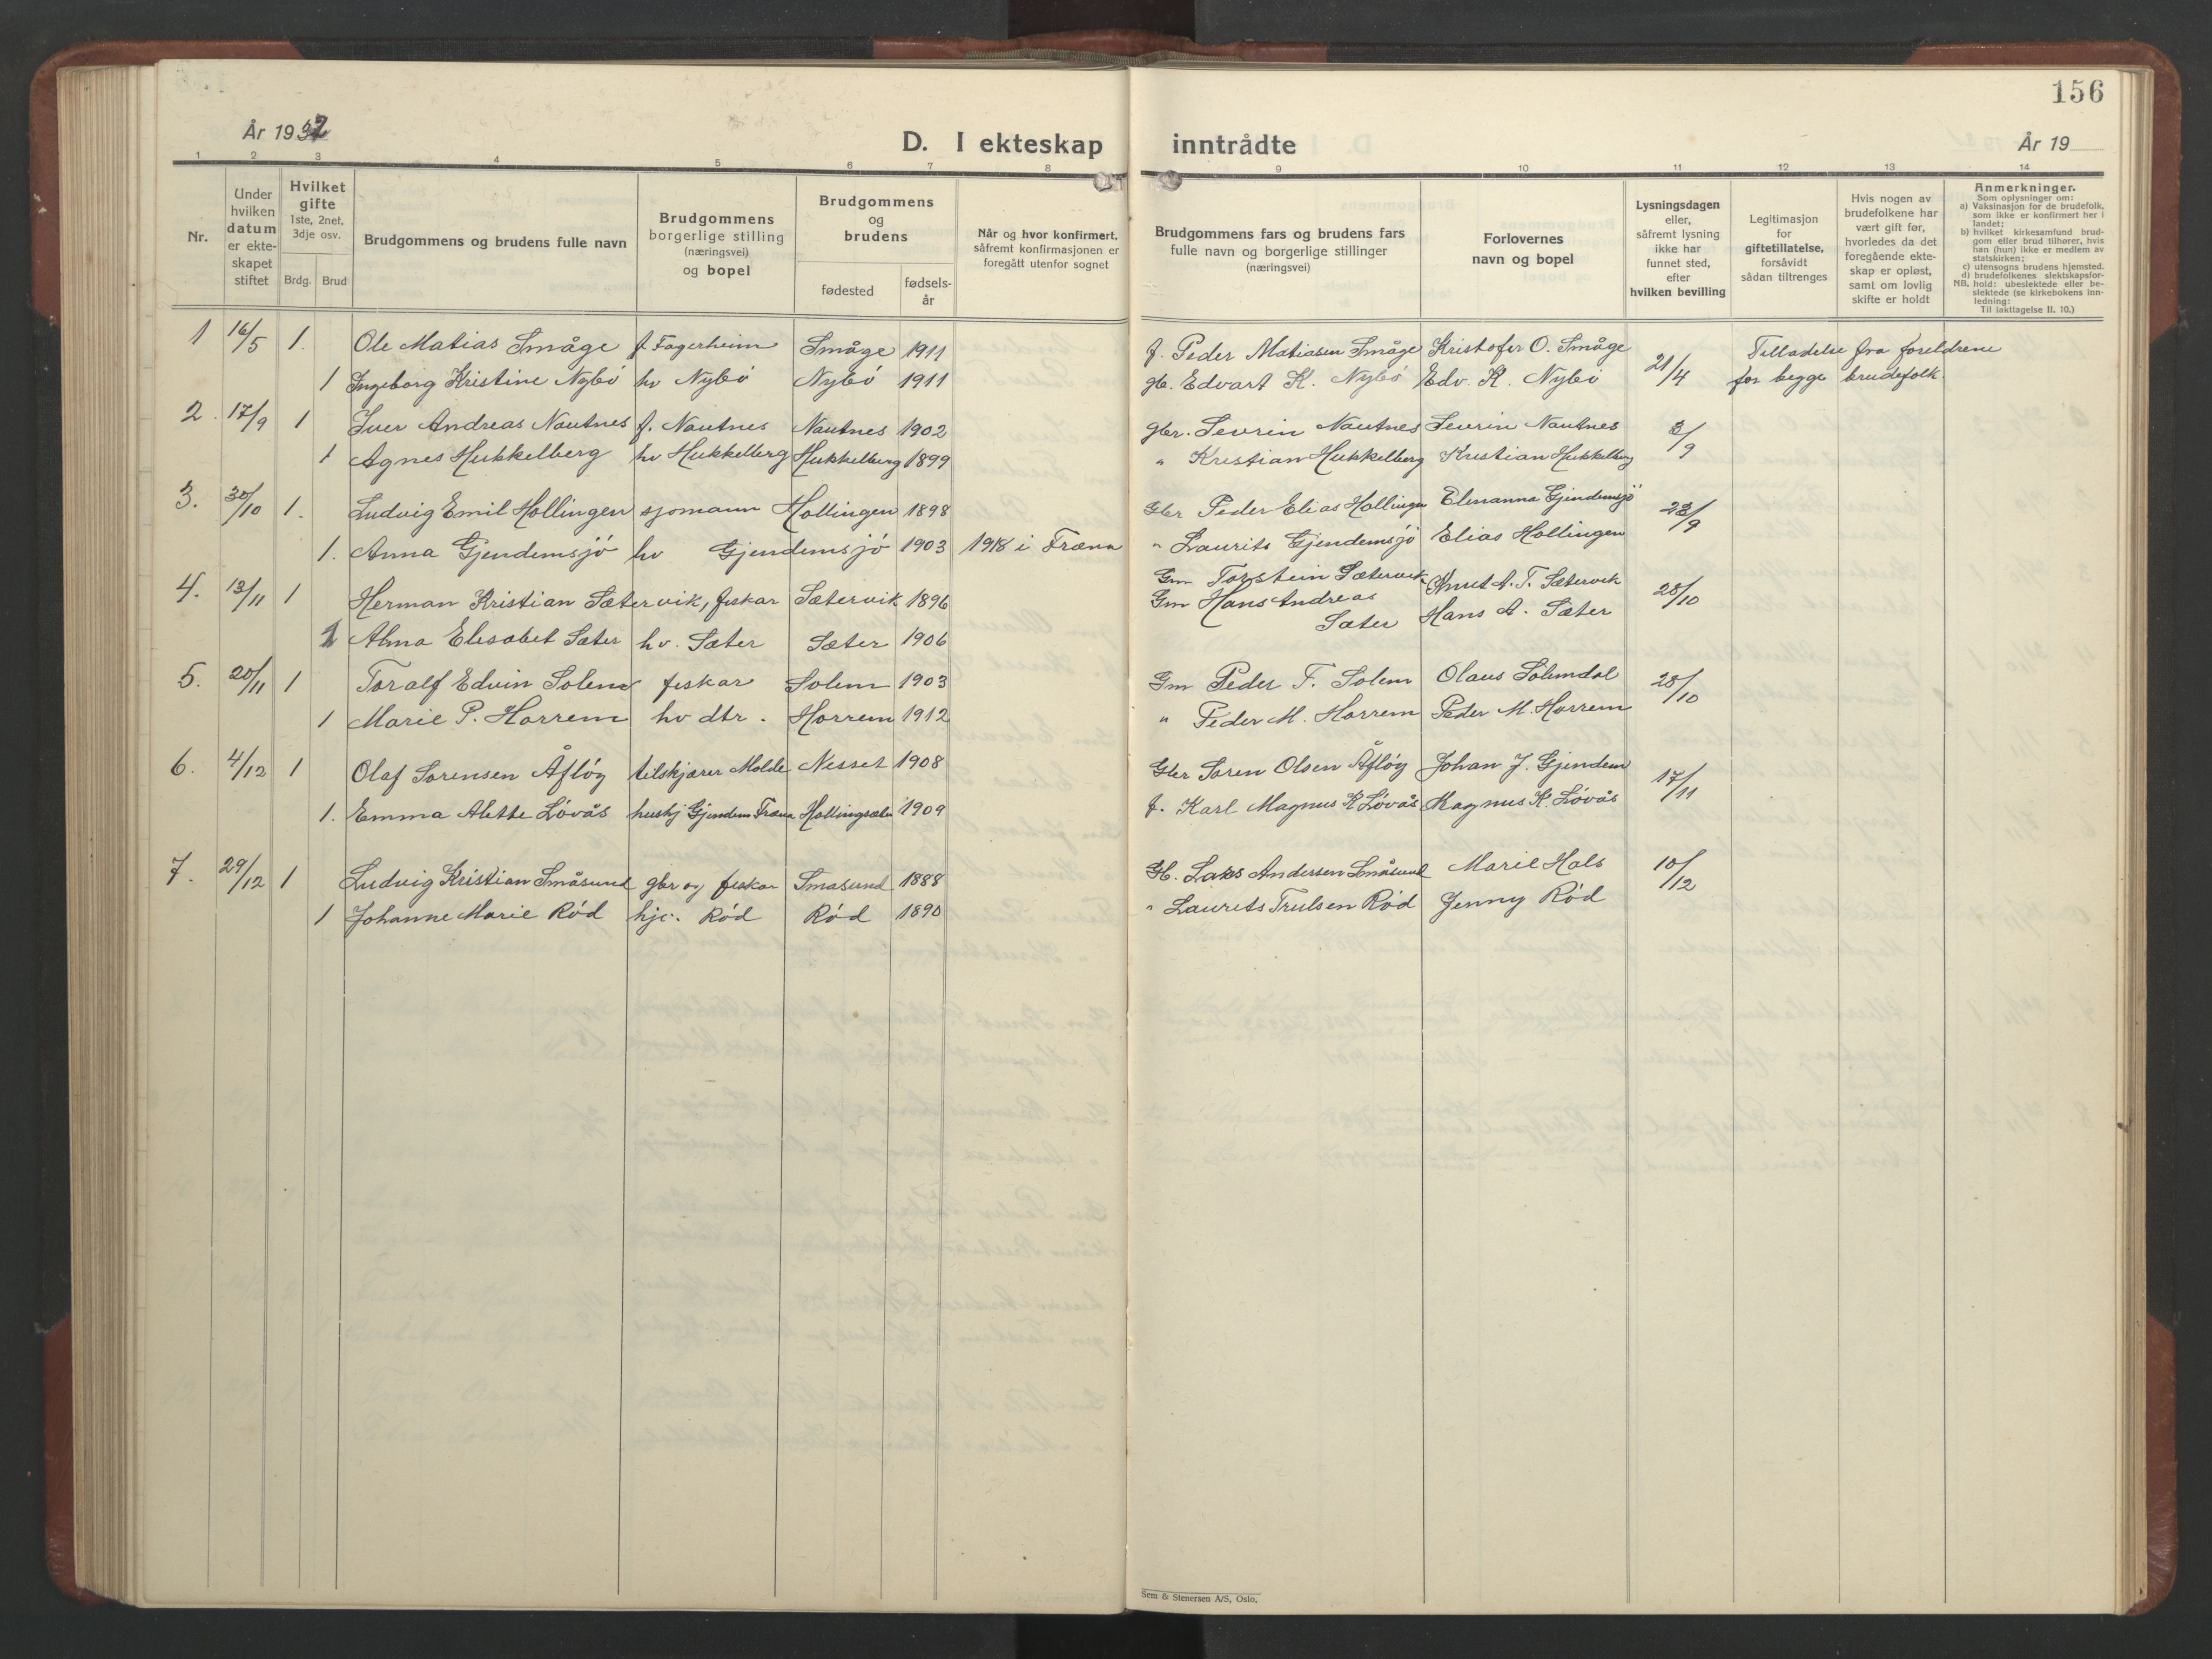 156
År 1932
D. I ekteskap inntrådte
År 19
1 2 3 4 5 6 7 8 9 10 11 12 13 14
Nr.
Under hvilken datum er ekte-skapet stiftet
Hvilket gifte 1ste, 2net, 3dje osv.
Brdg. Brud
Brudgommens og brudens fulle navn
Brudgommens borgerlige stilling (næringsvei) og bopel
Brudgommens og brudens
fødested
fødsels-år
Når og hvor konfirmert, såfremt konfirmasjonen er foregått utenfor sognet
Brudgommens fars og brudens fars fulle navn og borgerlige stillinger (næringsvei)
Forlovernes navn og bopel
Lysningsdagen eller, såfremt lysning ikke har funnet sted, efter hvilken bevilling
Legitimasjon for giftetillatelse, forsåvidt sådan tiltrenges
Hvis nogen av brudefolkene har vært gift før, hvorledes da det foregående ekte-skap er opløst, samt om lovlig skifte er holdt
Anmerkninger.
Som oplysninger om:
a) Vaksinasjon for de brudefolk, som ikke er konfirmert her i landet;
b) hvilket kirkesamfund brud-gom eller brud tilhører, hvis han (hun) ikke er medlem av statskirken;
c) utensogns brudens hjemsted.
d) brudefolkenes slektskapsfor-
NB. hold: ubeslektede eller be-slektede (se kirkebokens inn-ledning:
Til iakttagelse II. 10.)
1 16/5 1. Ole Matias Småge f. Fagerheim Småge 1911 f. Peder Matiasen Småge Kristofer O. Småge 21/4 Tilladelse fra foreldrene
1 Ingeborg Kristine Nybö hv Nybö Nybö 1911 gb. Edvart K. Nybö Edv. K. Nybö for begge brudefolk.
2. 17/9 1 Iver Andreas Nautnes f. Nautnes Nautnes 1902 gbr. Sevrin Nautnes Sevrin Nautnes 3/9
1 Agnes Hukkelberg hv Hukkelberg Hukkelberg 1899 " Kristian Hukkelberg Kristian Hukkelberg
3. 30/10 1. Ludvig Emil Hollingen sjømann Hollingen 1898 Gbr Peder Elias Hollingen Elenanna Gjendemsjö 23/9
1. Anna Gjendemsjö hv Gjendemsjö 1903 1918 i Fræna " Laurits Gjendemsjö Elias Hollingen
4. 13/11 1 Herman Kristian Sætervik, fiskar Sætervik 1896 Gm Torstein Sætervik Knut A. T. Sætervik 28/10
1 Alma Elisabet Sæter hv. Sæter Sæter 1906 Gm Hans Andreas Sæter Hans A. Sæter
5. 20/11 1 Toralf Edvin Solem fiskar Solem 1903 Gm Peder T. Solem Olaus Solemdal 28/10
1 Marie P. Harrem hv dtr. Harrem 1912 " Peder M. Harrem Peder M. Harrem
6. 4/12 1 Olaf Sørensen Åfløy tilskjærer Molde Nesset 1908 Gbr Søren Olsen Åfløy Johan J. Gjendem 17/11
1. Emma Alette Løvås hushj Gjendem Fræna Hollingsæter 1909 f. Karl Magnus K Løvås Magnus K. Løvås
7. 29/12 1 Ludvig Kristian Småsund gbr og fiskar Smasund 1888 Lars Andersen Småsund Marie Hals 10/12
1 Johanne Marie Rød hjc. Rød Rød 1890 " Laurits Trulsen Rød Jenny Rød
Sem & Stenersen A/S, Oslo.